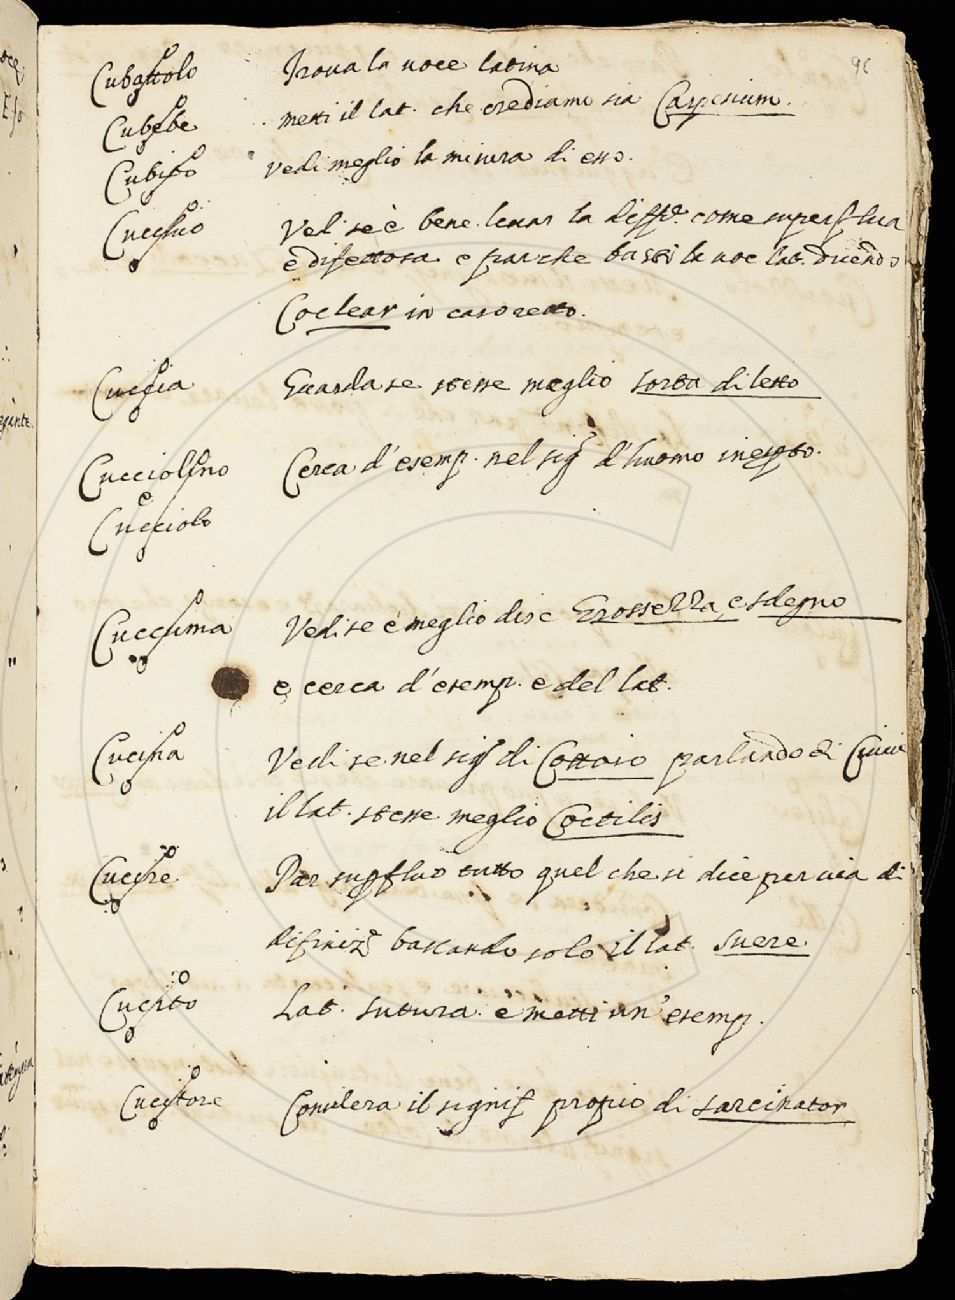 96
Cubattolo Trova la voce latina
Cubebe metti il lat. che crediamo sia Carpesium.
Cubito Vedi meglio la misura di esso.
Vedi se è bene levar la diffi.ne come superflua
è difettosa e par che basti la voc. lat. dicendo
Coclear in caso retto.
Cuccia Guarda se stesse meglio sorta di letto
Cucciolino Cerca d'esemp. nel sig. d'huomo inesperto.
e
Cucciolo
Cuccuma Vedi se è meglio dire Grossezza, e sdegno
e cerca d'esemp. e del lat.
Cucina Vedi se nel sig. di Cottoio parlando di
il lat. stesse meglio Coctilis
Cucire Par supfluo tutto quel che si dice per via di
difiniz.e bastando solo il lat. suere.
Cucito Lat. sutura. e metti un'esemp.
Cucitore Considera il signif. propio di sarcinator